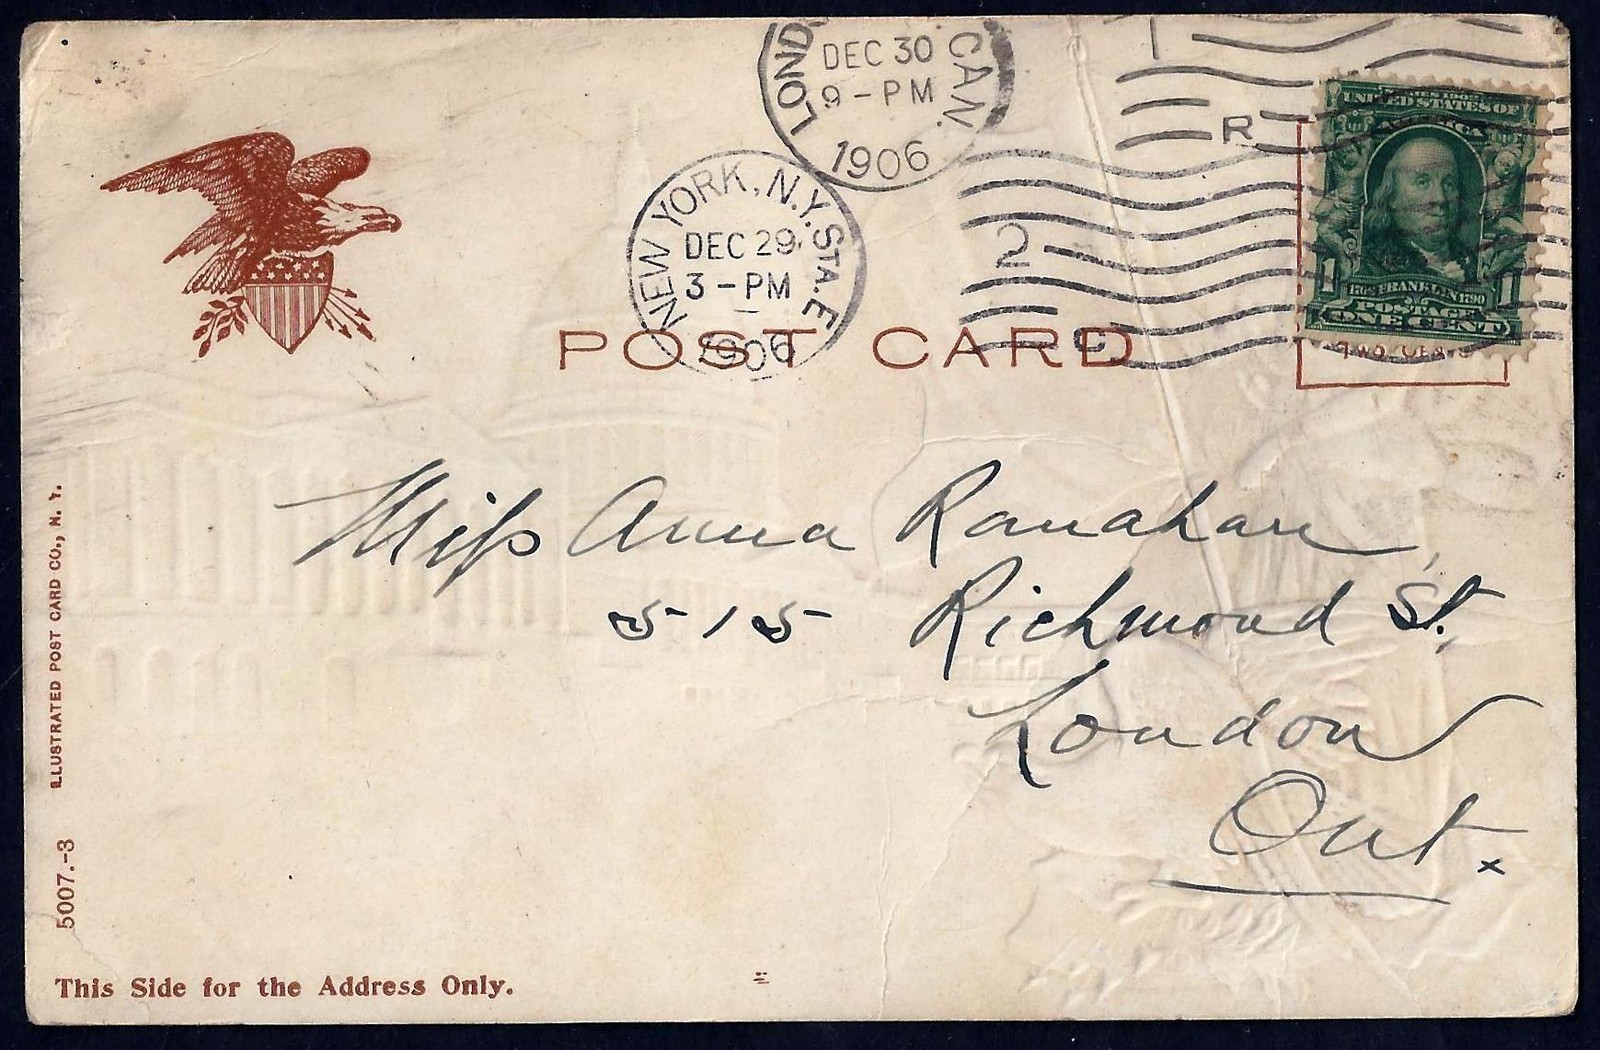 LOND CAN.
DEC 30
9-PM
1906
R
NEW YORK, N.Y. STA. E
DEC 29
3-PM
1906
2
SERIES 1902
UNITED STATES OF
AMERICA
1706 FRANKLIN 1790
1 1
POSTAGE
ONE CENT
TWO CENTS
POST CARD
Miss Anna Ranahan
515 Richmond St.
London
Ont.
ILLUSTRATED POST CARD CO., N. Y.
5007.-3
This Side for the Address Only.